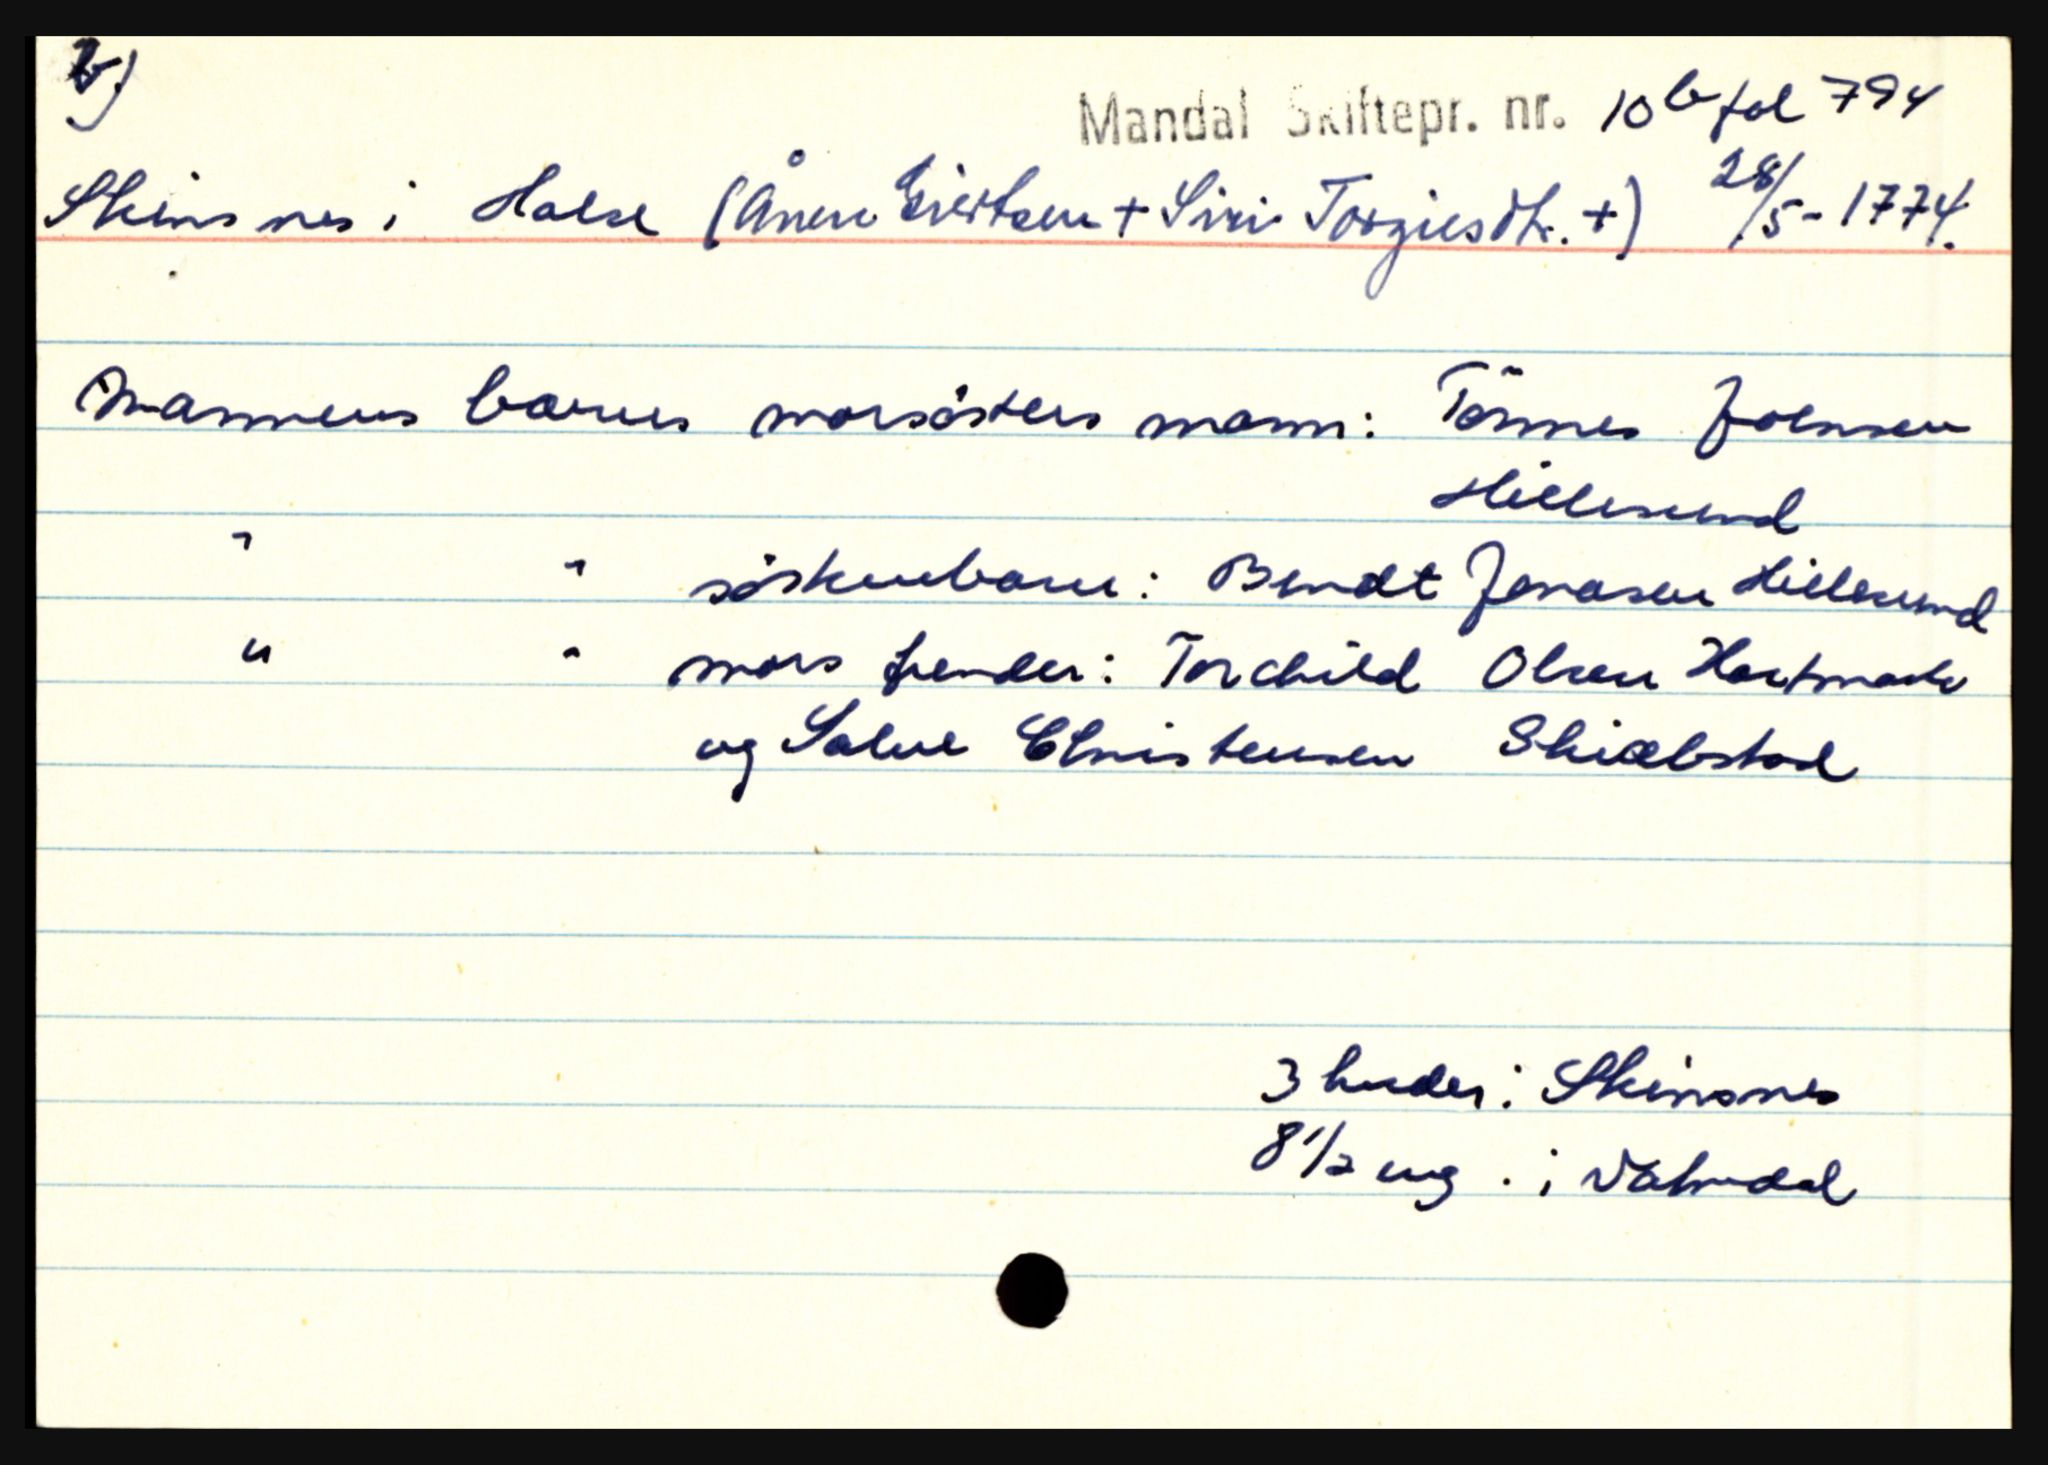 b)
Mandal Skiftepr. nr. 10 b fol 794
Skinsnes i Halse (Ånen Giertsen + Siri Torgiesdtr. +) 28/5-1774.
Mannens barns morsösters mann: Tönnes Joensen
Hillesund
" " söskenbarn: Berndt Jonasen Hillesund
" " mors frender: Torchild Olsen Hartmark
og Salve Christensen Skiæbstad
3 huder i Skinsnes
8 1/2 eng. i